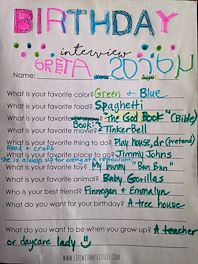 BIRTHDAY
interview
GRETA
Name:
What is your favorite color? Green + Blue
What is your favorite food? Spaghetti
What is your favorite Book? "The God Book" (Bible)
What is your favorite movie? TinkerBell
What is your favorite thing to do? Play house, dr (pretend)
Read + craft
What is your favorite place to go? Jimmy Johns
What is your favorite toy? My bunny "Bun Bun"
What is your favorite animal? Baby Gorillas
Who is your best friend? Finnegan + Emmalyn
What do you want for your birthday? A tree house
What do you want to be when you grow up? A teacher
or daycare lady